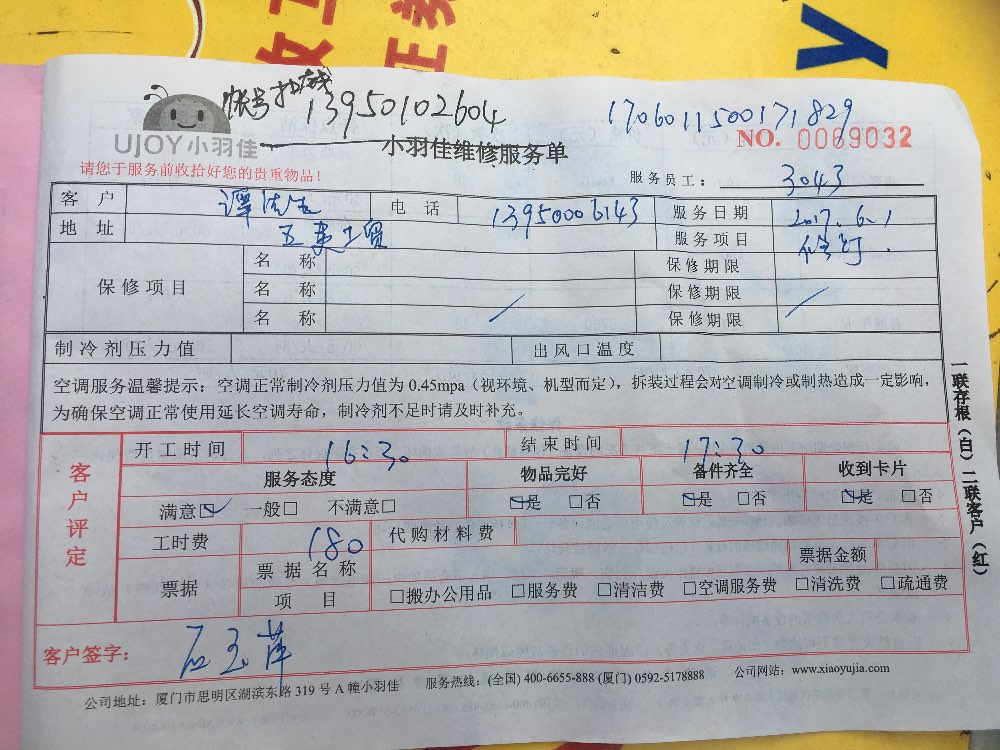 帐号在线
13950102604
17060115001 71829
UJOY小羽佳
小羽佳维修服务单
NO. 0069032
请您于服务前收拾好您的贵重物品!
服务员工: 3043
客 户 电 话 13950006143 服务日期 2017.6.1
地 址 五美工贸 服务项目 修灯.
保修项目 名 称 保修期限
名 称 保修期限
名 称 保修期限
制冷剂压力值 出风口温度
空调服务温馨提示:空调正常制冷剂压力值为 0.45mpa(视环境、机型而定),拆装过程会对空调制冷或制热造成一定影响,
为确保空调正常使用延长空调寿命,制冷剂不足时请及时补充。
客户评定
开工时间 16:30 结束时间 17:30
服务态度 物品完好 备件齐全 收到卡片
满意☑ 一般□ 不满意□ ☑是 □否 ☑是 □否 ☑是 □否
工时费 180 代购材料费
票据 票据名称 票据金额
项 目 □搬办公用品 □服务费 □清洁费 □空调服务费 □清洗费 □疏通费
客户签字: 石玉萍
公司地址:厦门市思明区湖滨东路 319 号 A 幢小羽佳 服务热线:(全国) 400-6655-888 (厦门) 0592-5178888 公司网站:www.xiaoyujia.com
一联存根(白)二联客户(红)